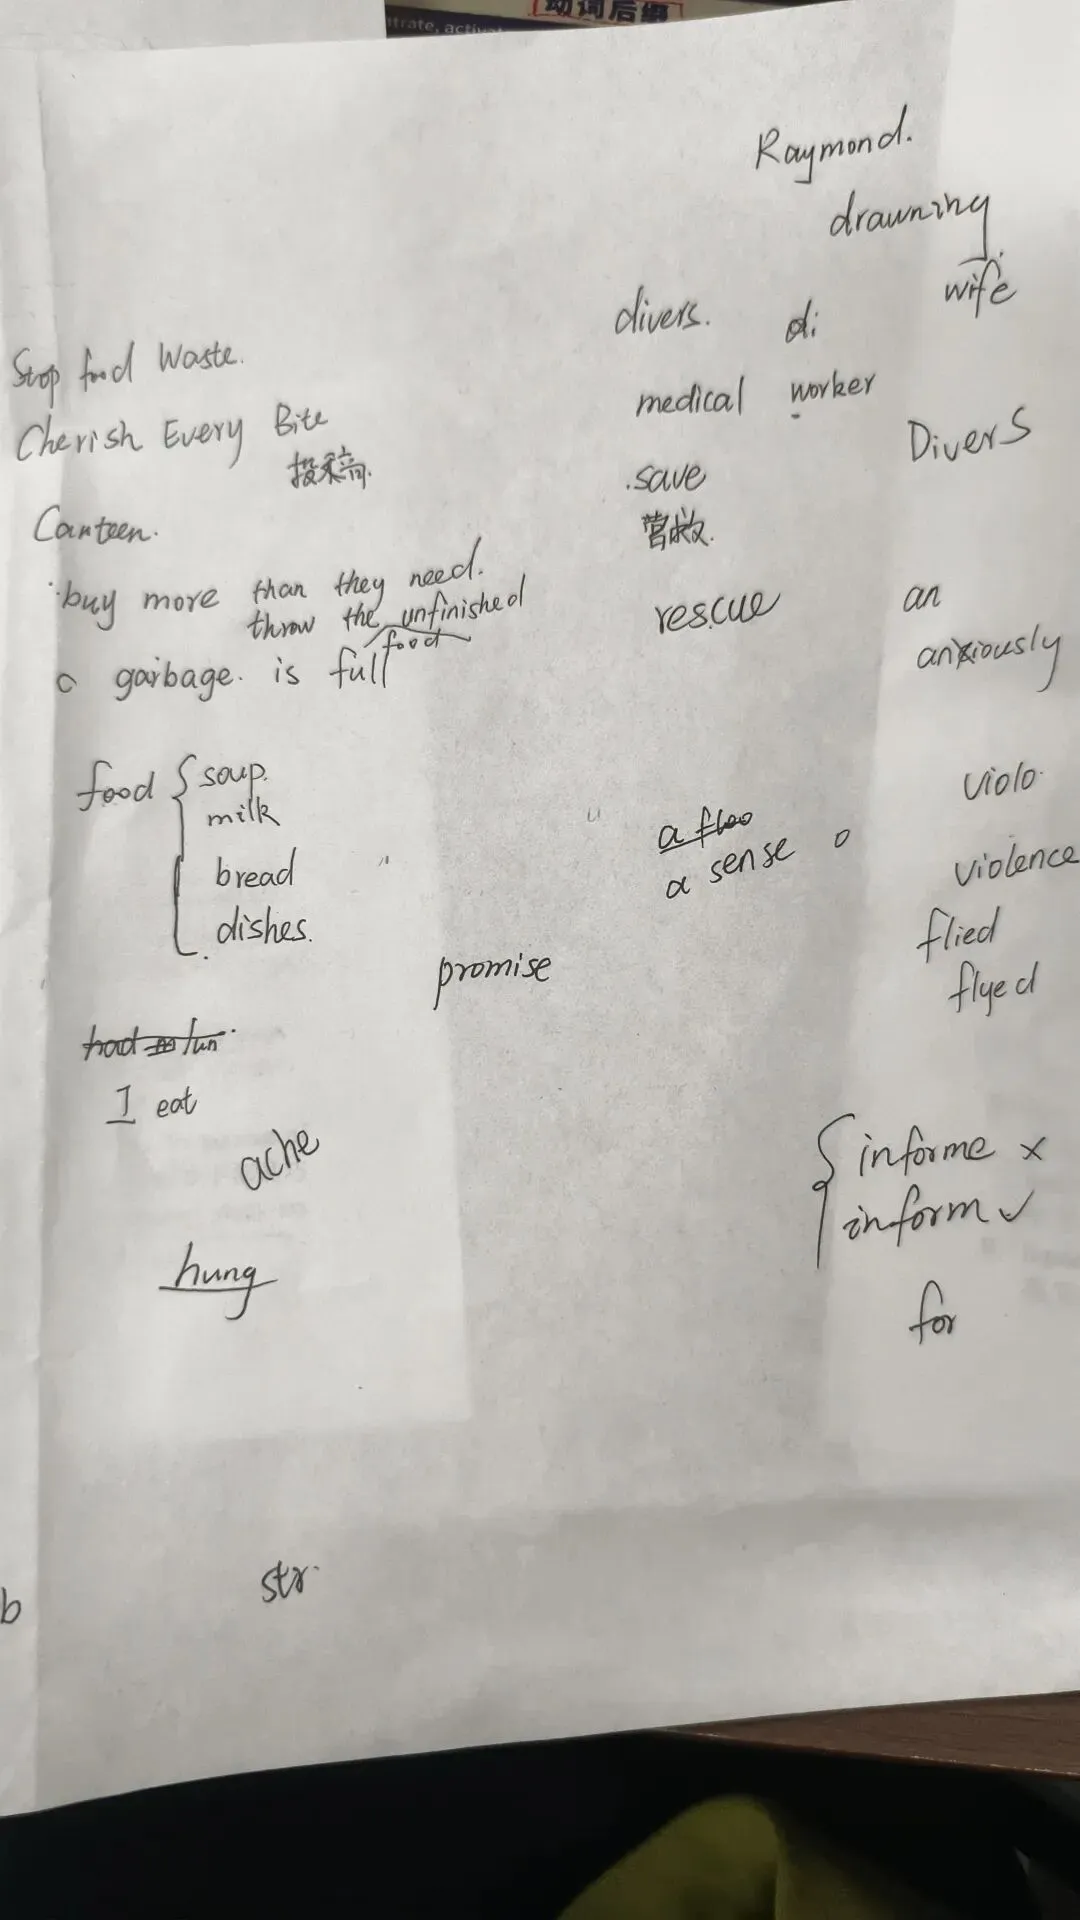 动词后缀
trate, activ
Raymond.
drawning
wife
divers. di
medical worker
Divers
.save
营救.
rescue
an
anxiously
Stop food Waste.
Cherish Every Bite
投稿.
Canteen.
buy more than they need.
throw the unfinished
food
a garbage. is full
food { soup.
milk
bread
dishes.
violo
a floo
a sense o
violence
flied
flyed
promise
had m lun
I eat
ache
hung
{ informe ×
inform ✓
for
str
b